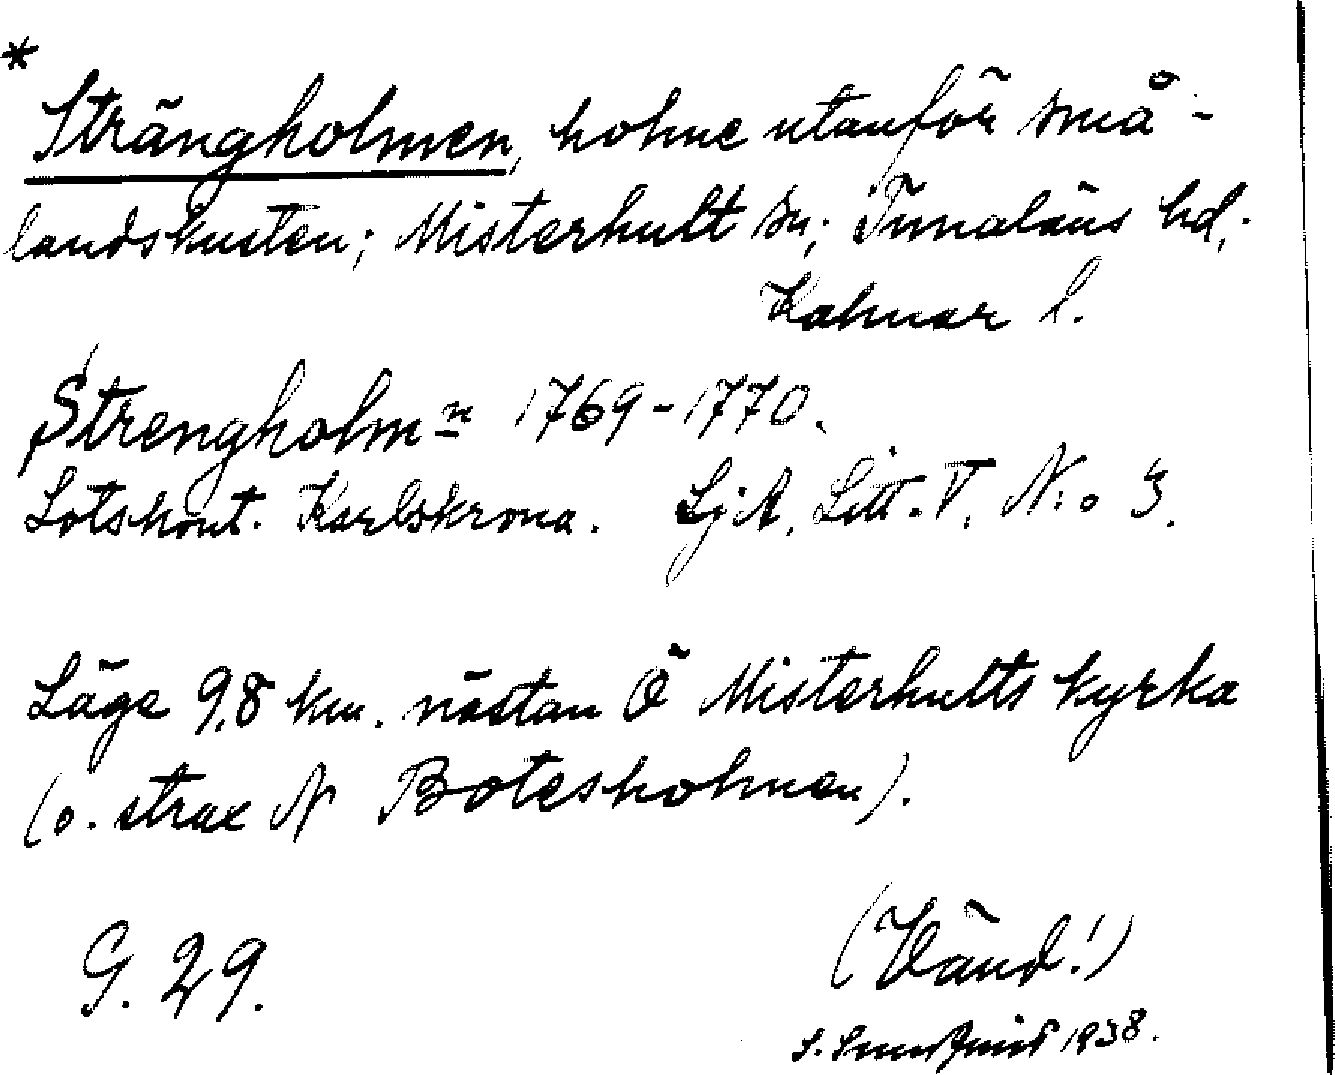 *
Strängholmen, holme utanför små-
landskusten; Misterhult sn; Tunaläns hd;
Kalmar l.
Strengholmn 1769-1770.
Lotskont. Karlskrona. SjA. Litt. V. N:o 3.
Läge 9,8 km. nästan Ö Misterhults kyrka
(o. strax N Botesholmen).
G. 29.
(Vänd!)
S. 1938.